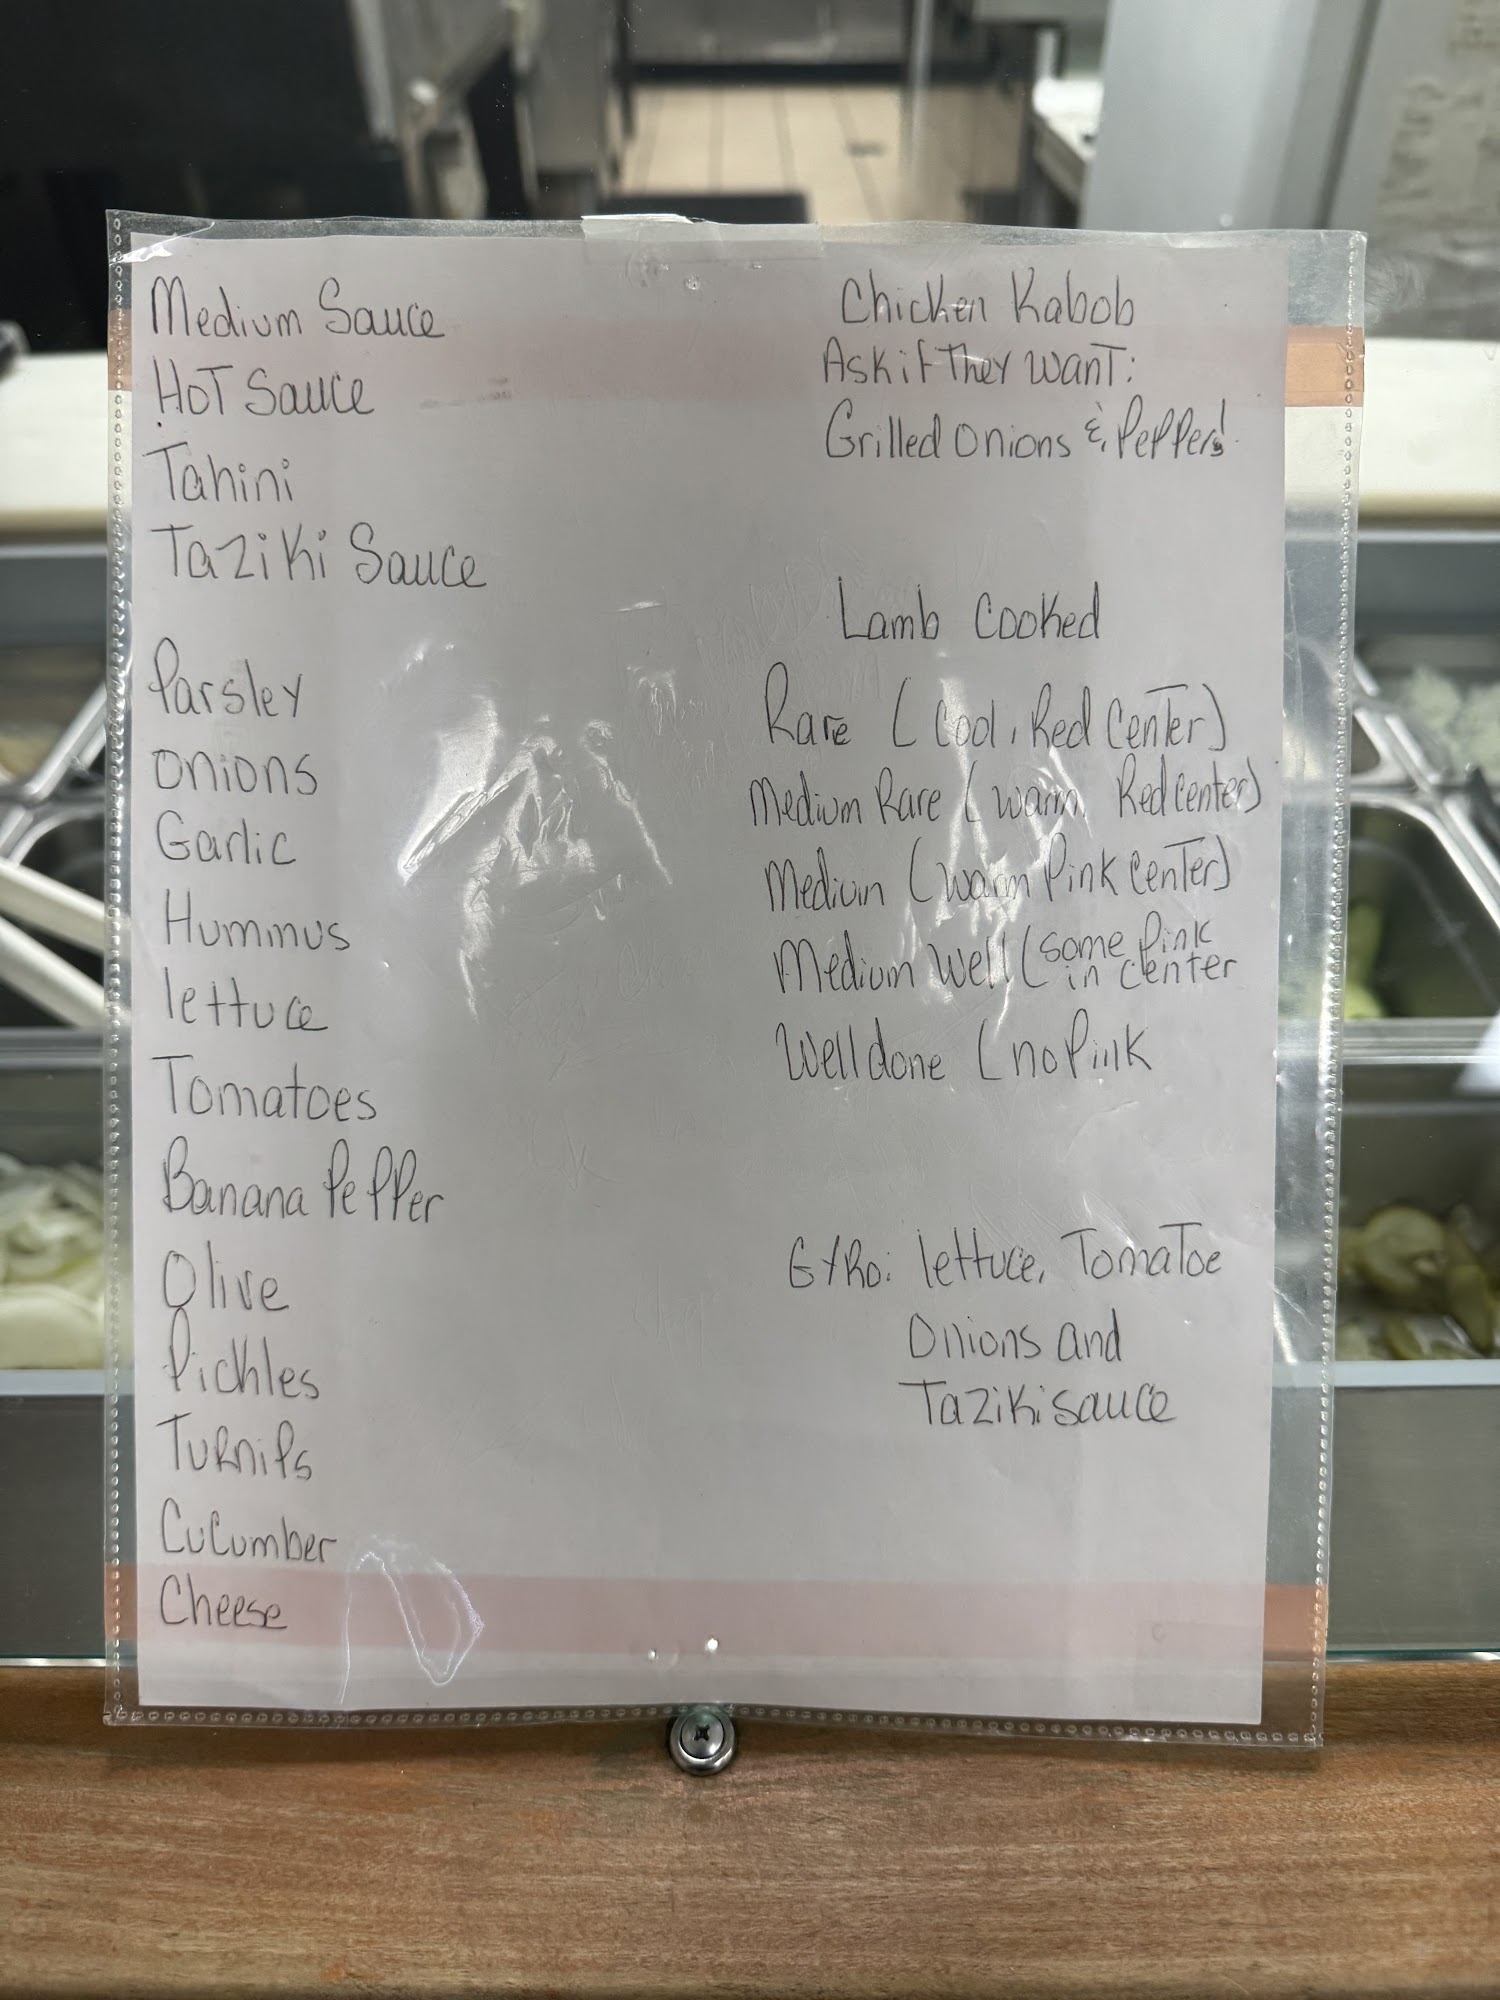 Medium Sauce
HOT Sauce
Tahini
Taziki Sauce
Parsley
onions
Garlic
Hummus
lettuce
Tomatoes
Banana Pepper
Olive
Pickles
Turnips
Cucumber
Cheese
Chicken Kabob
Ask if They want:
Grilled onions & Peppers!
Lamb Cooked
Rare (Cool, Red Center)
Medium Rare (warm Red center)
Medium (warm Pink Center)
Medium Well (some Pink
in center
Well done (no Pink
GYRO: lettuce, Tomatoe
Onions and
Taziki sauce